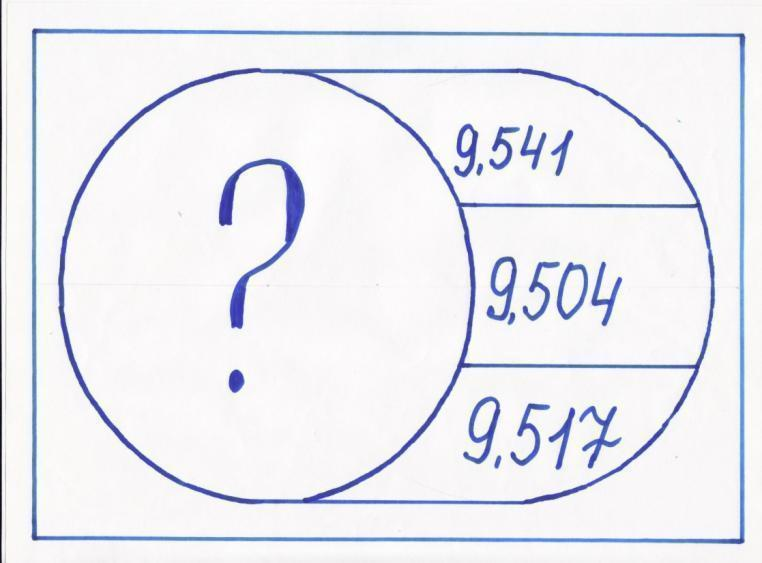 ?
9,541
9,504
9,517